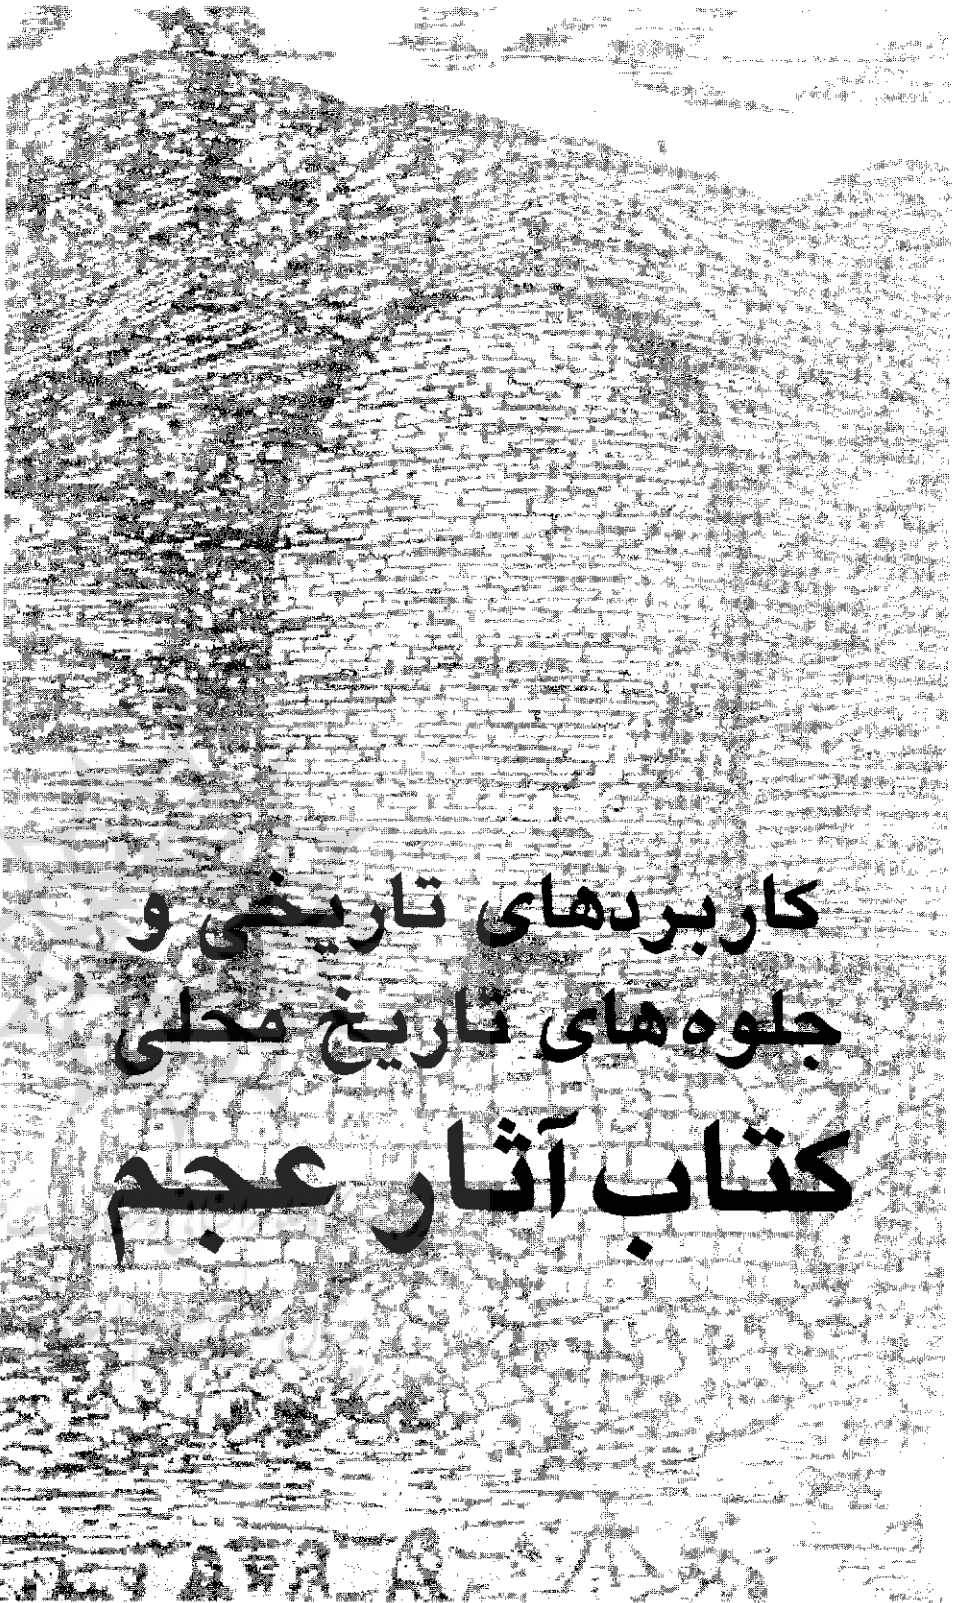 کاربردهای تاریخی و
جلوه‌های تاریخ محلی
کتاب آثار عجم